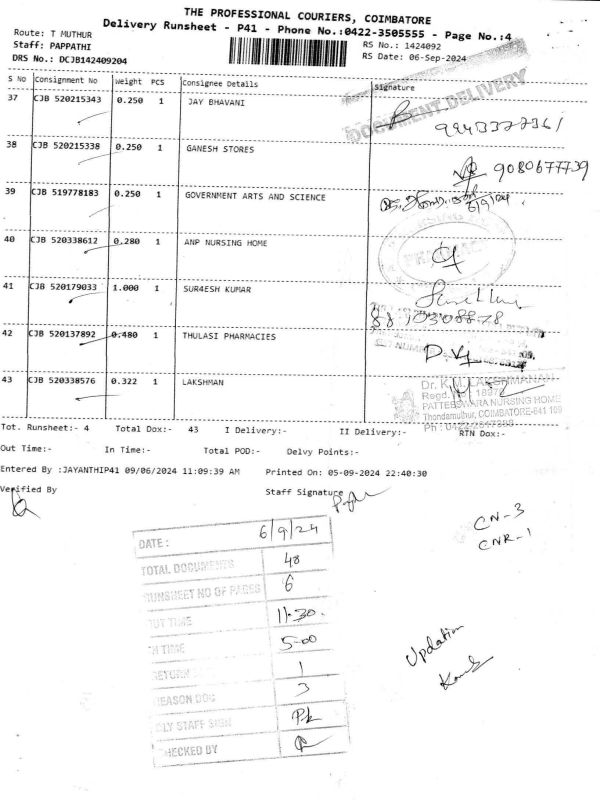 THE PROFESSIONAL COURIERS, COIMBATORE
Delivery Runsheet - P41 - Phone No.:0422-3505555 - Page No.:4
Route: T MUTHUR
Staff: PAPPATHI
RS No.: 1424092
DRS No.: DCJB142409204
RS Date: 06-Sep-2024
S No Consignment No Weight PCS Consignee Details Signature
DOCUMENT DELIVERY
37 CJB 520215343 0.250 1 JAY BHAVANI
38 CJB 520215338 0.250 1 GANESH STORES
9080677739
39 CJB 519778183 0.250 1 GOVERNMENT ARTS AND SCIENCE
6/9/24
40 CJB 520338612 0.280 1 ANP NURSING HOME
41 CJB 520179033 1.000 1 SUR4ESH KUMAR
42 CJB 520137892 0.480 1 THULASI PHARMACIES
43 CJB 520338576 0.322 1 LAKSHMAN
Dr. K.M. LAKSHMANAN
Regd. 18972
PATTEESWARA NURSING HOME
Thondamuthur, COIMBATORE-641 109
Ph : 0422-2617388
Tot. Runsheet:- 4 Total Dox:- 43 I Delivery:- II Delivery:- RTN Dox:-
Out Time:- In Time:- Total POD:- Delvy Points:-
Entered By :JAYANTHIP41 09/06/2024 11:09:39 AM Printed On: 05-09-2024 22:40:30
Verified By Staff Signature
CN-3
CNR-1
DATE : 6/9/24
TOTAL DOCUMENTS 48
RUNSHEET NO OF PAGES 6
OUT TIME 11-30
IN TIME 5-00
RETURN 1
REASON DOC 3
DLY STAFF SIGN Pk
CHECKED BY
Updation